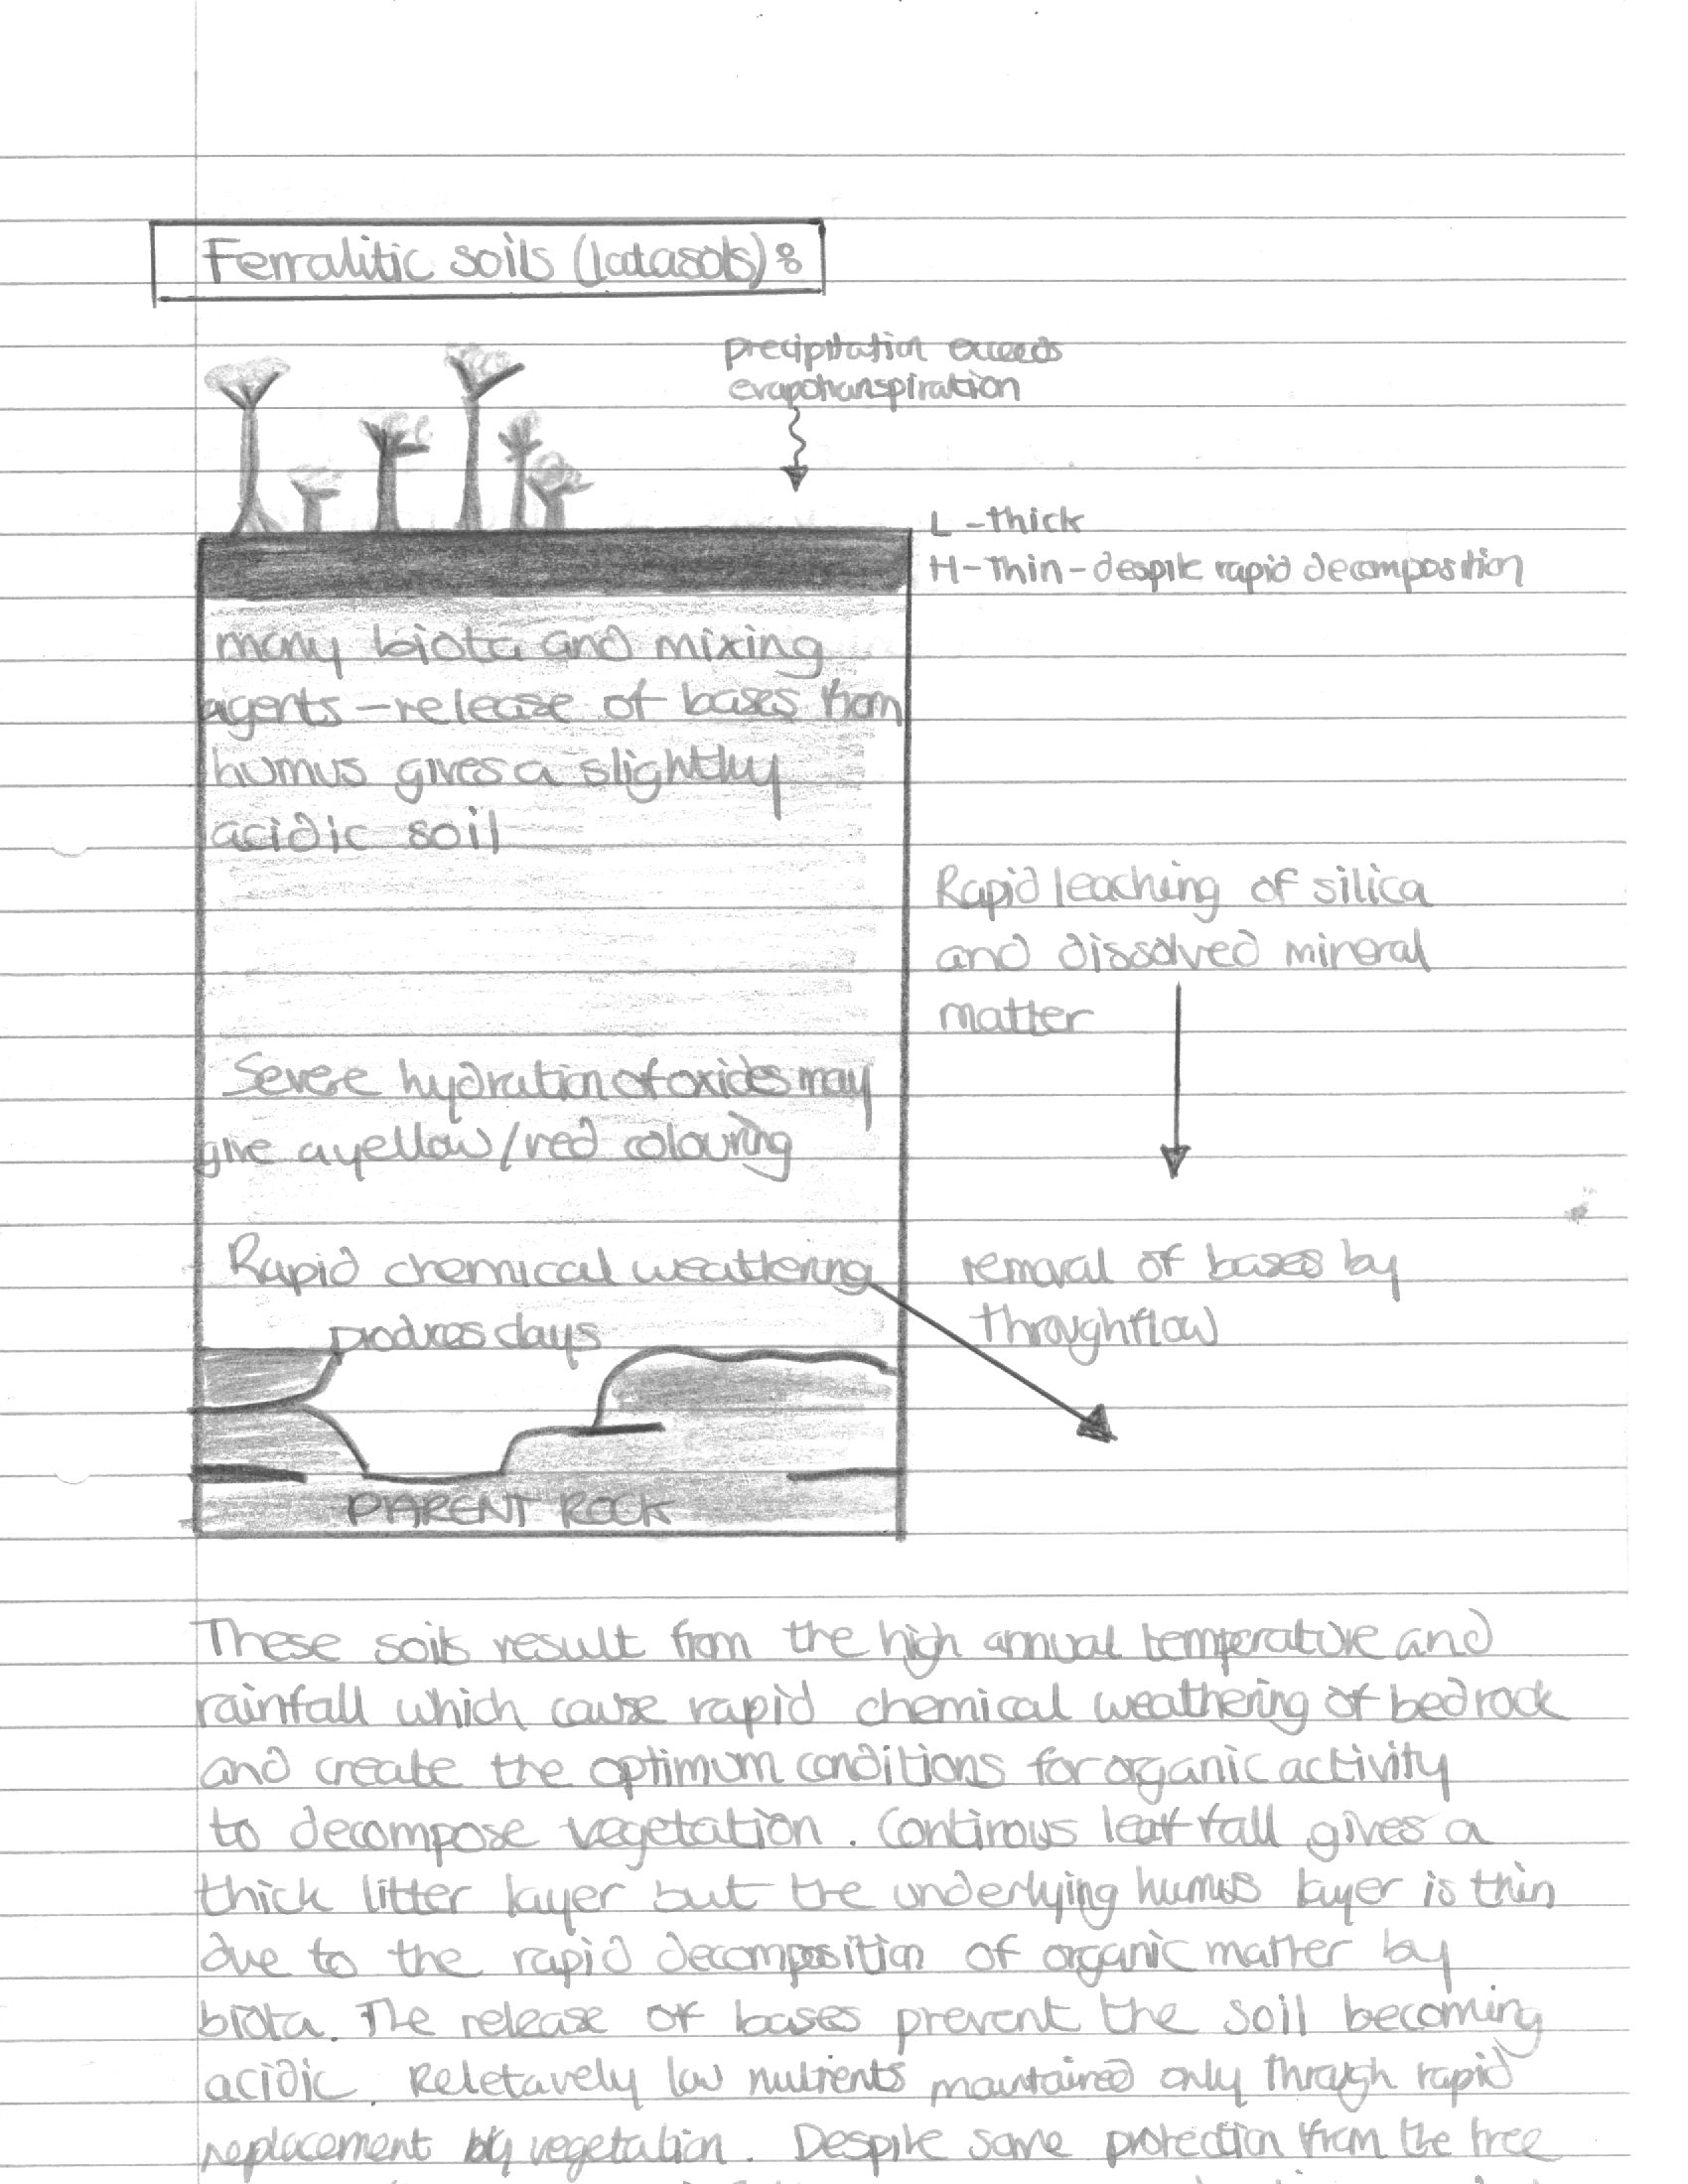 Ferralitic soils (latasols):
precipitation exceeds
evapotranspiration
L - thick
H - thin - despite rapid decomposition
many biota and mixing
agents - release of bases from
humus gives a slightly
acidic soil
Rapid leaching of silica
and dissolved mineral
matter
Severe hydration of oxides may
give a yellow/red colouring
Rapid chemical weathering
produces clays
removal of bases by
throughflow
PARENT ROCK
These soils result from the high annual temperature and
rainfall which cause rapid chemical weathering of bedrock
and create the optimum conditions for organic activity
to decompose vegetation. Continous leaf fall gives a
thick litter layer but the underlying humus layer is thin
due to the rapid decomposition of organic matter by
biota. The release of bases prevent the soil becoming
acidic. Reletavely low nutrients maintained only through rapid
replacement by vegetation. Despite some protection from the tree